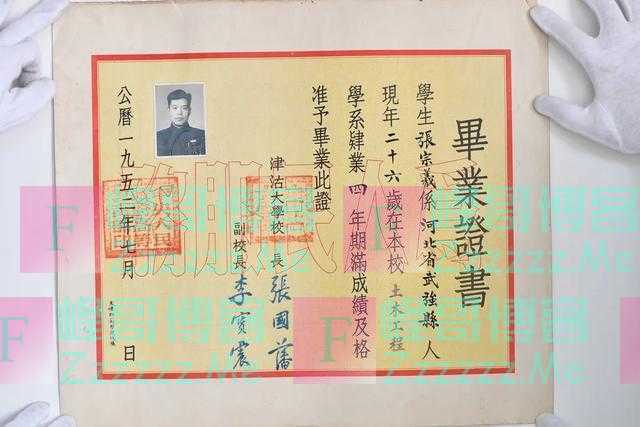 畢業證書
學生張宗義係河北省武強縣人
現年二十六歲在本校土木工程
學系肄業四年期滿成績及格
准予畢業此證
津沽大學校長張國藩
副校長李寶震
公曆一九五二年七月 日
為人民服務
F 峰哥博客
Z.zzzzz.Me
F 峰哥博客
Z.zzzzz.Me
F 峰哥博客
Z.zzzzz.Me
F 峰哥博客
Z.zzzzz.Me